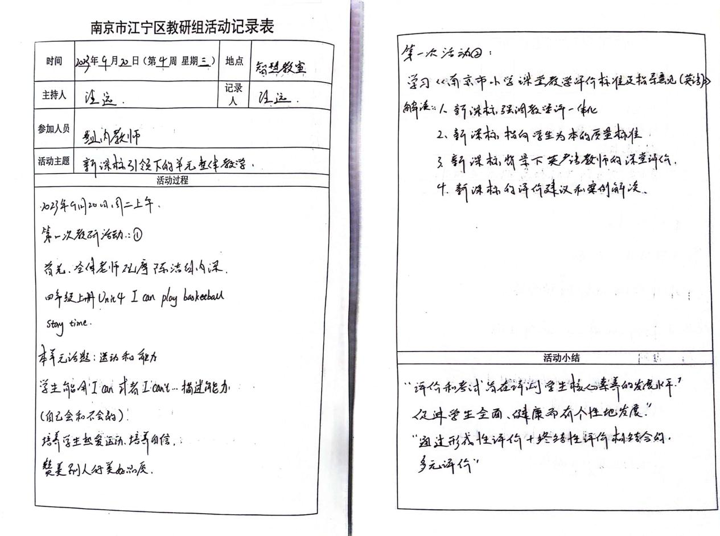 南京市江宁区教研组活动记录表
时间 2023年9月20日(第4周 星期三) 地点 智慧教室
主持人 汪远. 记录人 汪远.
参加人员 组内教师
活动主题 新课标引领下的单元整体教学.
活动过程
2023年9月20日,周二上午.
第一次教研活动:①
首先,全体老师观摩陈洁的内课.
四年级上册 Unit4 I can play basketball
Story time.
本单元话题:运动和能力
学生能用I can 或者 I can't... 描述能力.
(自己会和不会的)
培养学生热爱运动,培养自信.
赞美别人的美好品质.
第一次活动②:
学习《南京市小学课堂教学评价标准及指导意见(英语)》
解读:1. 新课标,强调教学评一体化
2. 新课标,指向学生为本的质量标准.
3. 新课标背景下英语教师的课堂评价.
4. 新课标的评价建议和案例解读.
活动小结
"评价和考试旨在评测学生核心素养的发展水平."
促进学生全面、健康而有个性地发展."
"通过形成性评价+终结性评价相结合的.
多元评价"